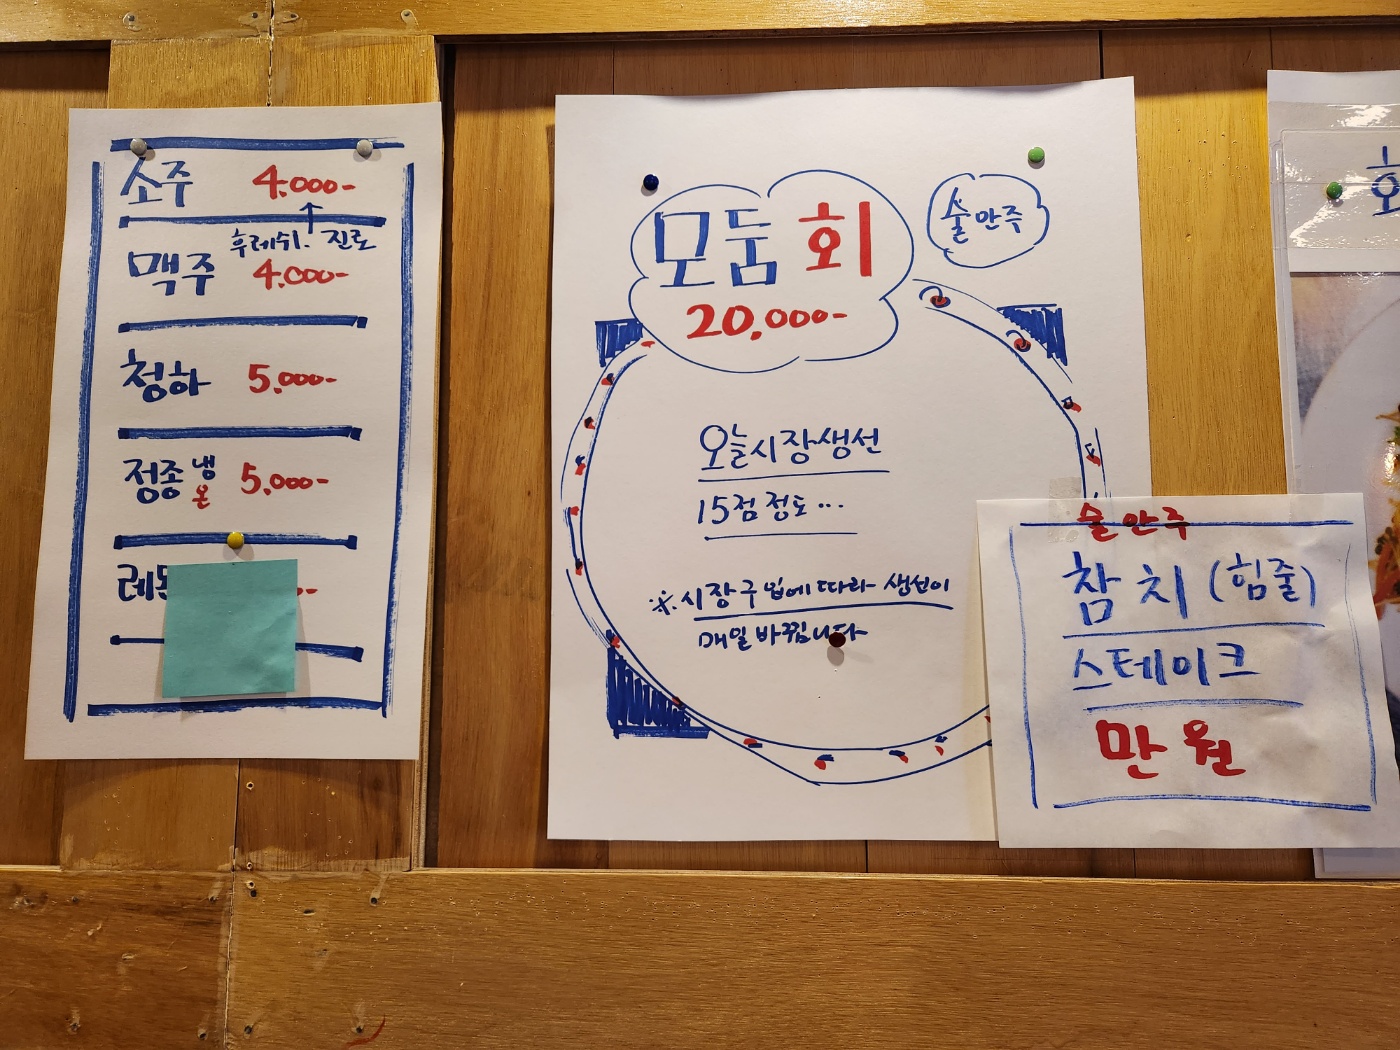 소주 4.000-
후레쉬. ↑ 진로
맥주 4.000-
청하 5.000-
정종 냉 온 5.000-
술안주
모둠회
20,000-
오늘시장생선
15점 정도...
※ 시장구입에 따라 생선이
매일 바뀝니다
술안주
참치(힘줄)
스테이크
만원